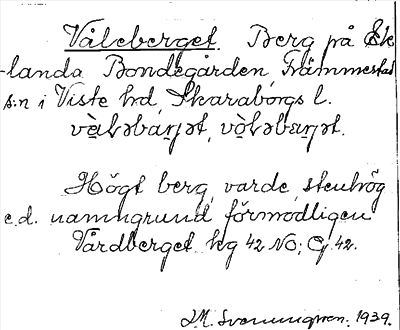 Våleberget. Berg på Ek-
landa Bondegården, Främmestad
s:n i Viste hd, Skaraborgs l.
vàləbaŋət, vòləbaŋət.
Högt berg, varde, stenhög
e.d. namngrund förmodligen
Vårdberget kg 42 NO; Cg. 42.
1939.